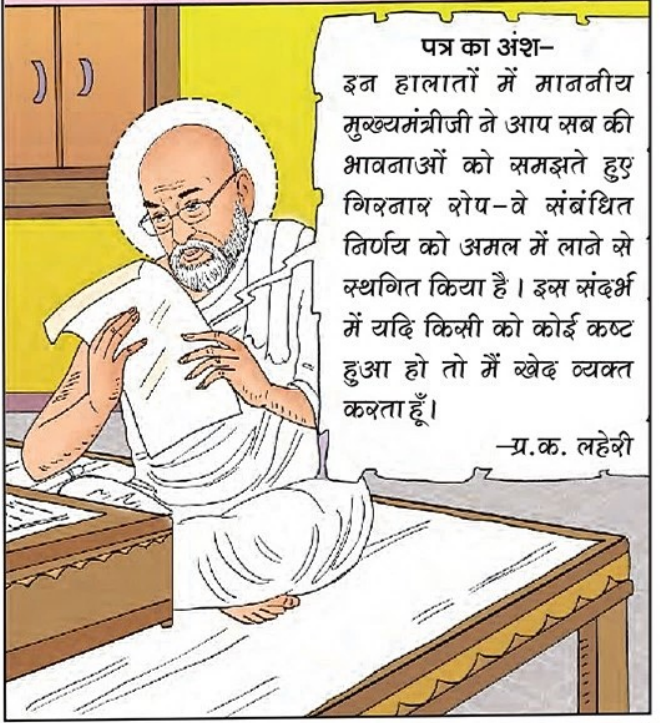 पत्र का अंश–
इन हालातों में माननीय
मुख्यमंत्रीजी ने आप सब की
भावनाओं को समझते हुए
गिरनार रोप-वे संबंधित
निर्णय को अमल में लाने से
स्थगित किया है । इस संदर्भ
में यदि किसी को कोई कष्ट
हुआ हो तो मैं खेद व्यक्त
करता हूँ।
–प्र.क. लहेरी